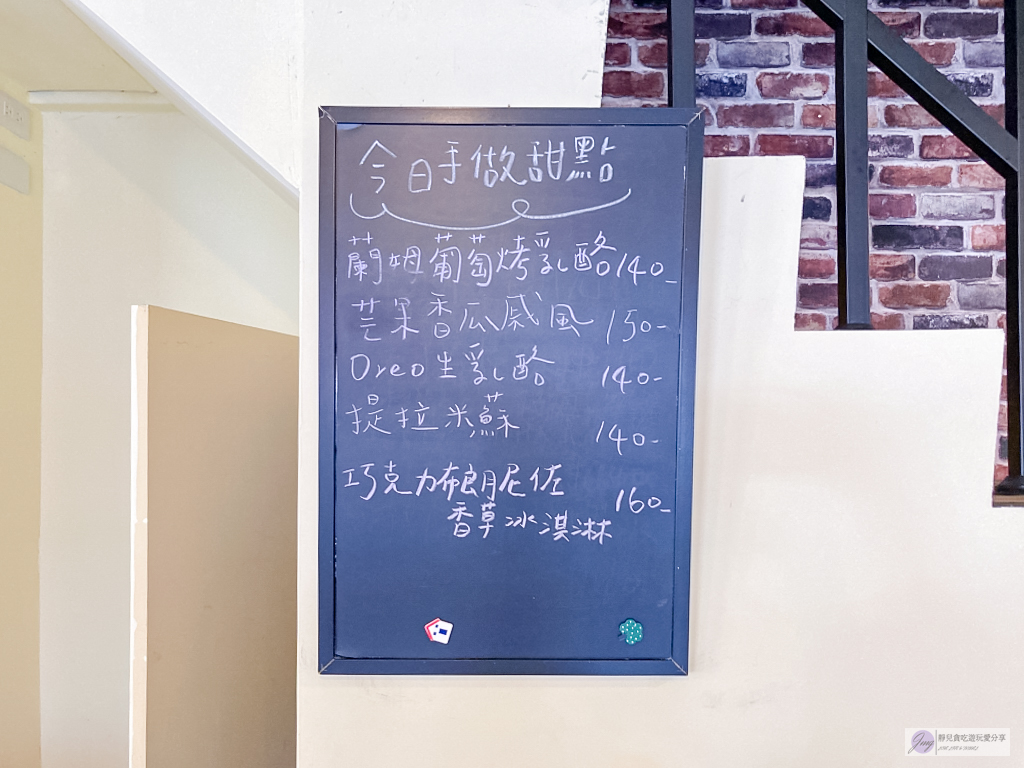 今日手做甜點
蘭姆葡萄烤乳酪 140-
芒果香瓜戚風 150-
Oreo生乳酪 140-
提拉米蘇 140-
巧克力布朗尼佐 160-
香草冰淇淋
靜兒貪吃遊玩愛分享